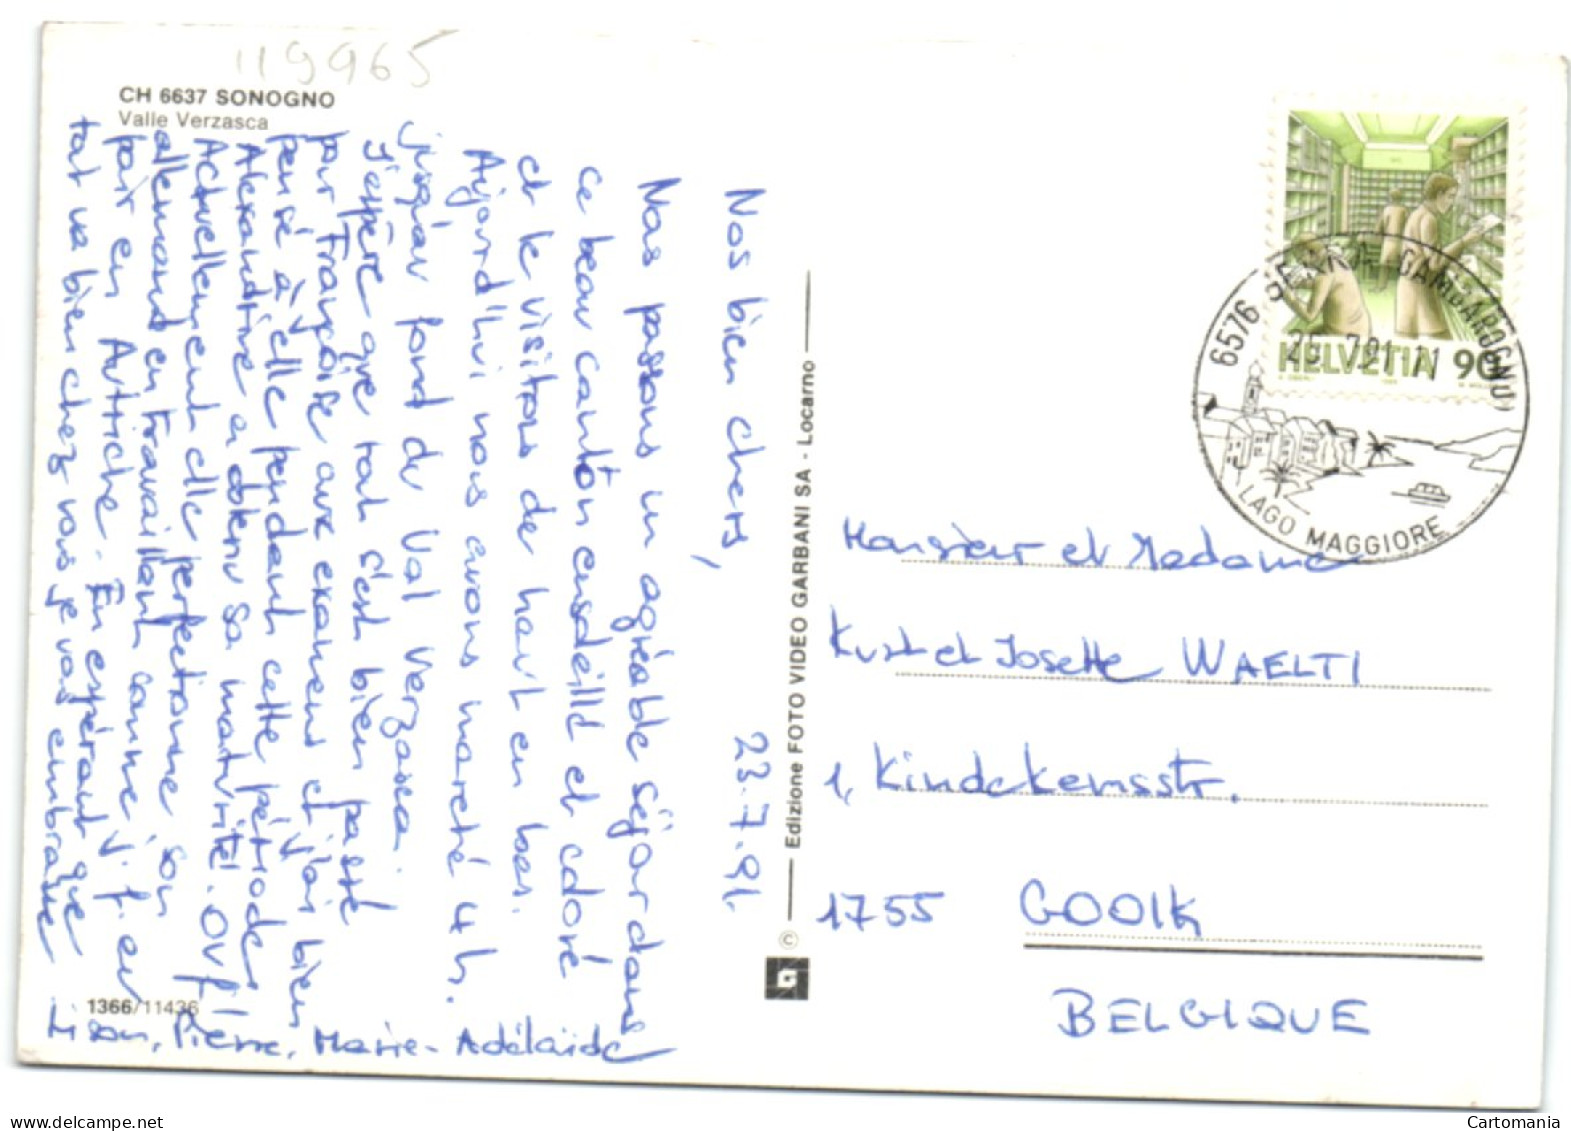 119965
CH 6637 SONOGNO
Valle Verzasca
Nos bien chers,
23.7.91.
Nous passons un agréable séjour dans
ce beau canton ensoleillé et coloré
et le visitons de haut en bas.
Aujourd'hui nous avons marché 4 h.
jusqu'au fond du Val Verzasca.
J'espère que tout s'est bien passé
pour Françoise aux examens et j'ai bien
pensé à elle pendant cette période
Alexandrine a obtenu sa maturité. Ouf!
Actuellement elle perfectionne son
allemand en travaillant comme j. f. au
pair en Autriche. En espérant que
tout va bien chez vous je vous embrasse
Lison, Pierre, Marie-Adélaïde
1366/11436
Edizione FOTO VIDEO GARBANI SA - Locarno
©
HELVETIA 90
6576 GAMBAROGNO
25.7.91 11
LAGO MAGGIORE
Monsieur et Madame
Kurt et Josette WAELTI
1, Kindekensstr.
1755 GOOIK
BELGIQUE
Cartomania